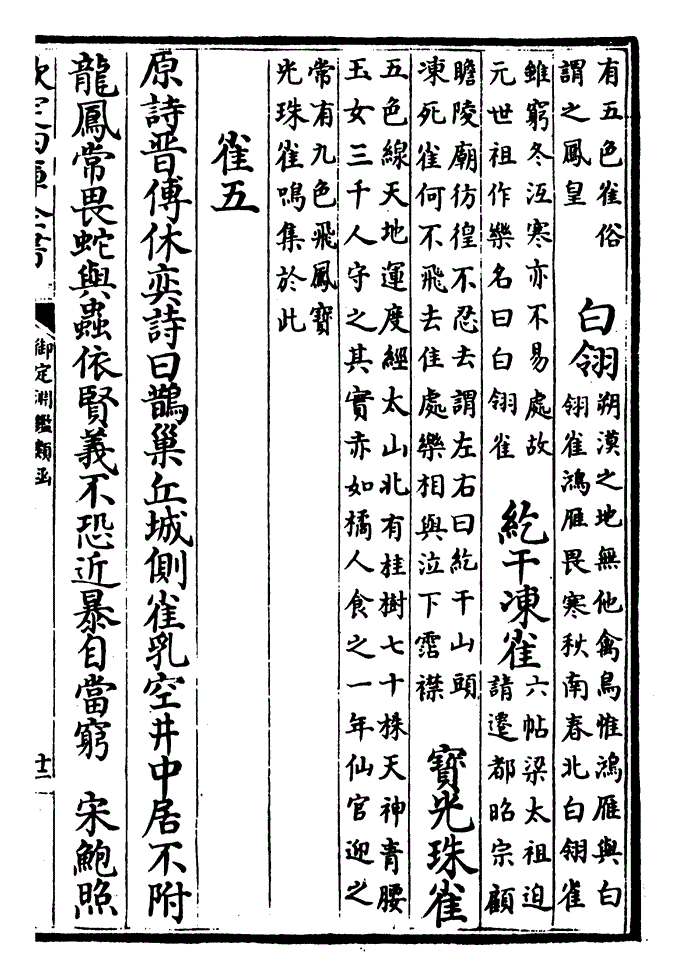 有五色雀俗
謂之鳳皇
白翎
朔漠之地無他禽鳥惟鴻雁與白
翎雀鴻雁畏寒秋南春北白翎雀
雖窮冬沍寒亦不易處故
元世祖作樂名曰白翎雀
紇干凍雀
六帖梁太祖迫
請遷都昭宗顧
瞻陵廟彷徨不忍去謂左右曰紇干山頭
凍死雀何不飛去住處樂相與泣下霑襟
寶光珠雀
五色線天地運度經太山北有桂樹七十株天神青腰
玉女三千人守之其實亦如橘人食之一年仙官迎之
常有九色飛鳳寶
光珠雀鳴集於此
雀五
原詩晉傅休奕詩曰鵲巢丘城側雀乳空井中居不附
龍鳳常畏蛇與蟲依賢義不恐近暴自當窮　宋鮑照
欽定四庫全書
御定淵鑑類函